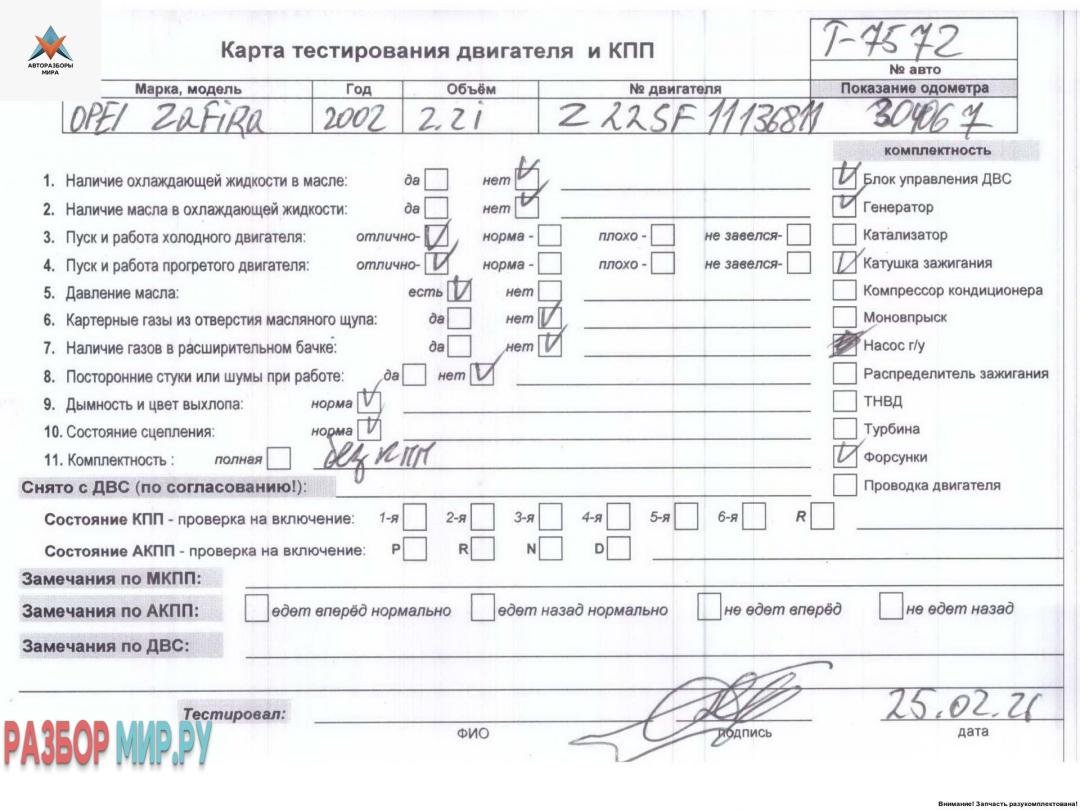 АВТОРАЗБОРЫ
МИРА
Карта тестирования двигателя и КПП
T-7572
№ авто
Марка, модель Год Объём № двигателя Показание одометра
OPEl ZaFiRa 2002 2.2i Z22SF 11136811 304067
комплектность
1. Наличие охлаждающей жидкости в масле: да нет Блок управления ДВС
2. Наличие масла в охлаждающей жидкости: да нет Генератор
3. Пуск и работа холодного двигателя: отлично- норма - плохо - не завелся- Катализатор
4. Пуск и работа прогретого двигателя: отлично- норма - плохо - не завелся- Катушка зажигания
5. Давление масла: есть нет Компрессор кондиционера
6. Картерные газы из отверстия масляного щупа: да нет Моновпрыск
7. Наличие газов в расширительном бачке: да нет Насос г/у
8. Посторонние стуки или шумы при работе: да нет Распределитель зажигания
9. Дымность и цвет выхлопа: норма ТНВД
10. Состояние сцепления: норма Турбина
11. Комплектность : полная без КПП Форсунки
Снято с ДВС (по согласованию!): Проводка двигателя
Состояние КПП - проверка на включение: 1-я 2-я 3-я 4-я 5-я 6-я R
Состояние АКПП - проверка на включение: P R N D
Замечания по МКПП:
Замечания по АКПП: едет вперёд нормально едет назад нормально не едет вперёд не едет назад
Замечания по ДВС:
Тестировал: 25.02.21
ФИО подпись дата
РАЗБОРМИР.РУ
Внимание! Запчасть разукомплектована!